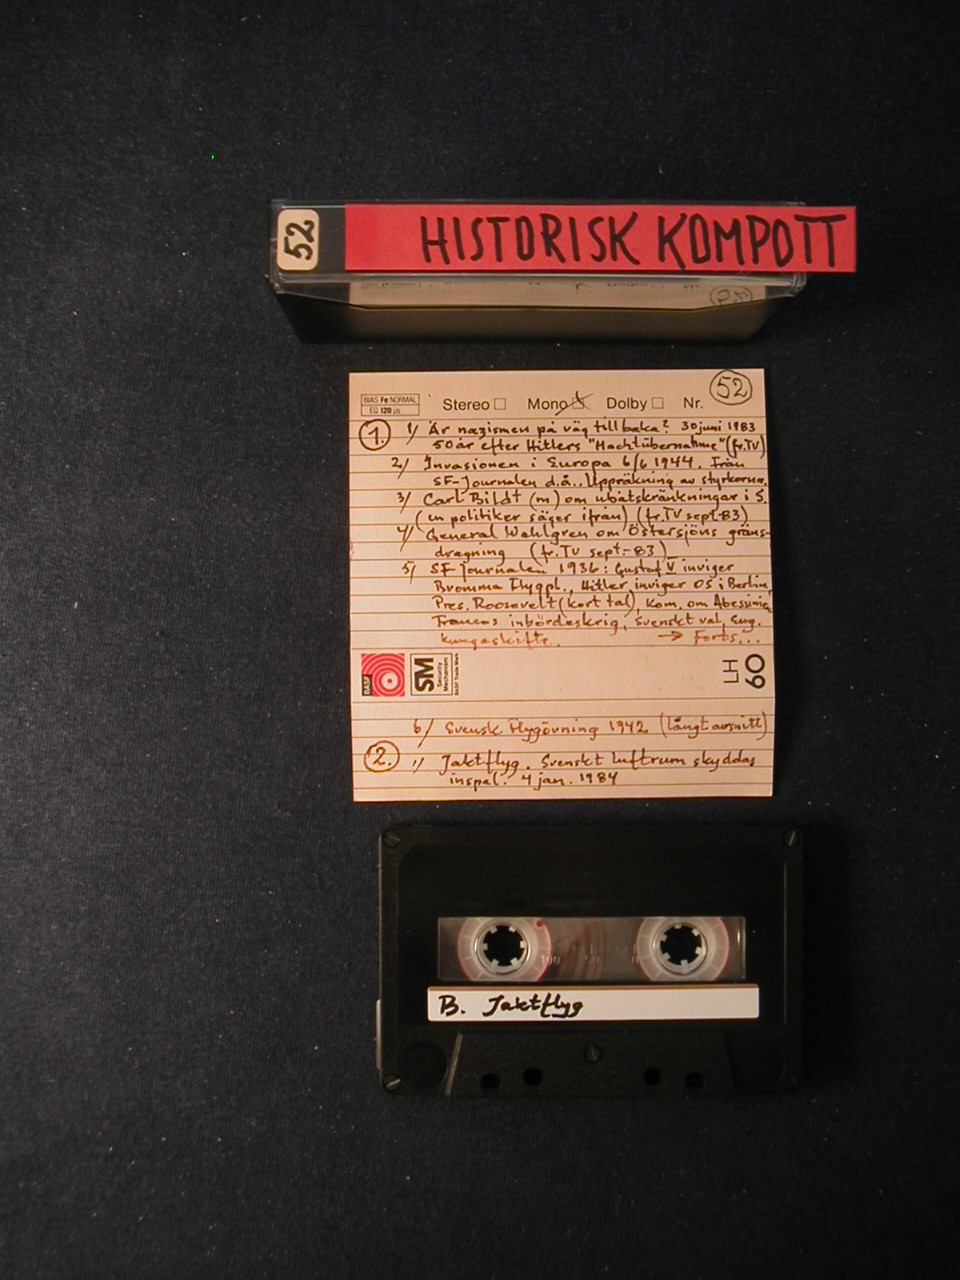 52
HISTORISK KOMPOTT
BIAS Fe NORMAL
EQ 120 µs
Stereo Mono Dolby Nr. 52
1. 1/ Är nazismen på väg tillbaka? 30 juni 1983
50 år efter Hitlers "Machtübernahme" (fr. TV)
2/ Invasionen i Europa 6/6 1944. Från
SF-Journalen d.å.. Uppräkning av styrkorna.
3/ Carl Bildt (m) om ubåtskränkningar i S.
(en politiker säger ifrån) (fr. TV sept-83)
4/ General Wahlgren om Östersjöns gräns-
dragning (fr. TV sept.-83)
5/ SF Journalen 1936: Gustaf V inviger
Bromma Flygpl., Hitler inviger OS i Berlin,
Pres. Roosevelt (kort tal), Kom. om Abessinien,
Francos inbördeskrig, Svenskt val, Eng.
kungaskifte. → Forts...
BASF
SM
Security
Mechanism
BASF Trade Mark
LH
60
6/ Svensk Flygövning 1942 (långt avsnitt)
2. 1/ Jaktflyg. Svenskt luftrum skyddas
inspel. 4 jan. 1984
B. Jaktflyg